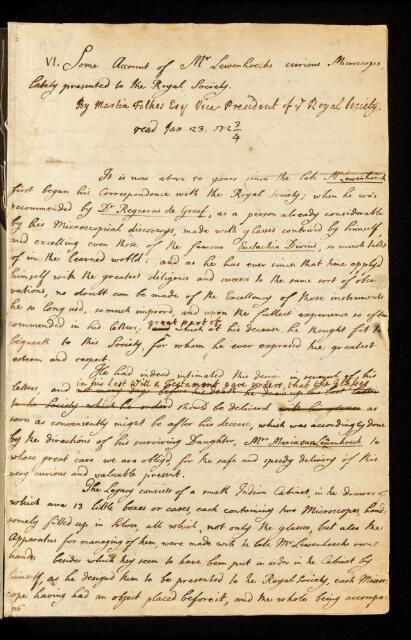 VI. Some Account of Mr Lewenhoecks curious Microscopes
lately presented to the Royal Society.
By Martin Folkes Esq Vice-President of ye Royal Society.
read Jan 23. 172 3/4
It is now above 50 years since the late Mr Lewenhoeck
first began his Correspondence with the Royal Society; when he was
recommended by Dr Regnerus de Graef, as a person already considerable
by his Microscopical discoverys, made with glasses contrived by himself,
and excelling even those of the famous Eustachio Divini, so much talkt
of in the learned world: and as he has ever since that time applyed
himself with the greatest diligence and success to the same sort of obser
vations, no doubt can be made of the Excellency of those instruments
he so long used, so much improved, and upon the fullest experience so often
commended in his letters, great part of which at his decease he thought fit to
bequeath to this Society, for whom he ever expressed the greatest
esteem and respect.
He had indeed intimated this design in several of his
letters, and in his last Will & Testament gave orders, that the Glasses
should be delivered as
soon as conveniently might be after his decease, which was accordingly done
by the directions of his surviving Daughter, Mrs Maria van Lewenhoeck to
whose great care we are obliged for the safe and speedy delivery of this
very curious and valuable present.
The Legacy consists of a small Indian Cabinet, in the drawers of
which are 13 little boxes or cases, each containing two Microscopes, hand
somely fitted up in silver, all which, not only the glasses, but also the
Apparatus for managing of them, were made with the late Mr Lewenhoecks own
hands: besides which they seem to have been put in order in the Cabinet by
himself, as he designed them to be presented to the Royal Society, each Micros
cope having had an object placed before it, and the whole being accompa-